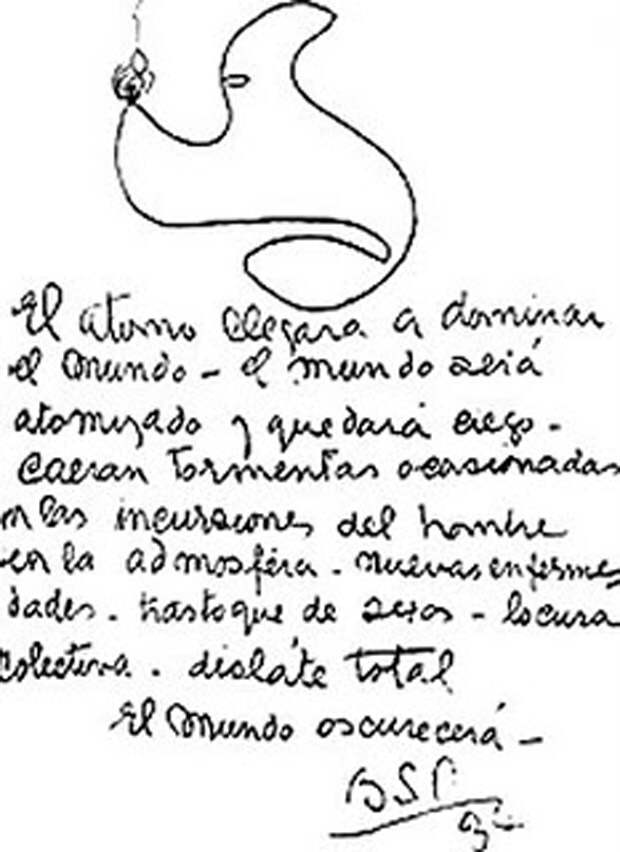 El atomo llegara a dominar
el mundo - el mundo será
atomizado y quedará ciego -
Caeran tormentas ocasionadas
por las incursiones del hombre
en la admosféra - nuevas enferme-
dades - trastoque de sexos - locura
colectiva . disláte total
El mundo oscurecerá -
BSP